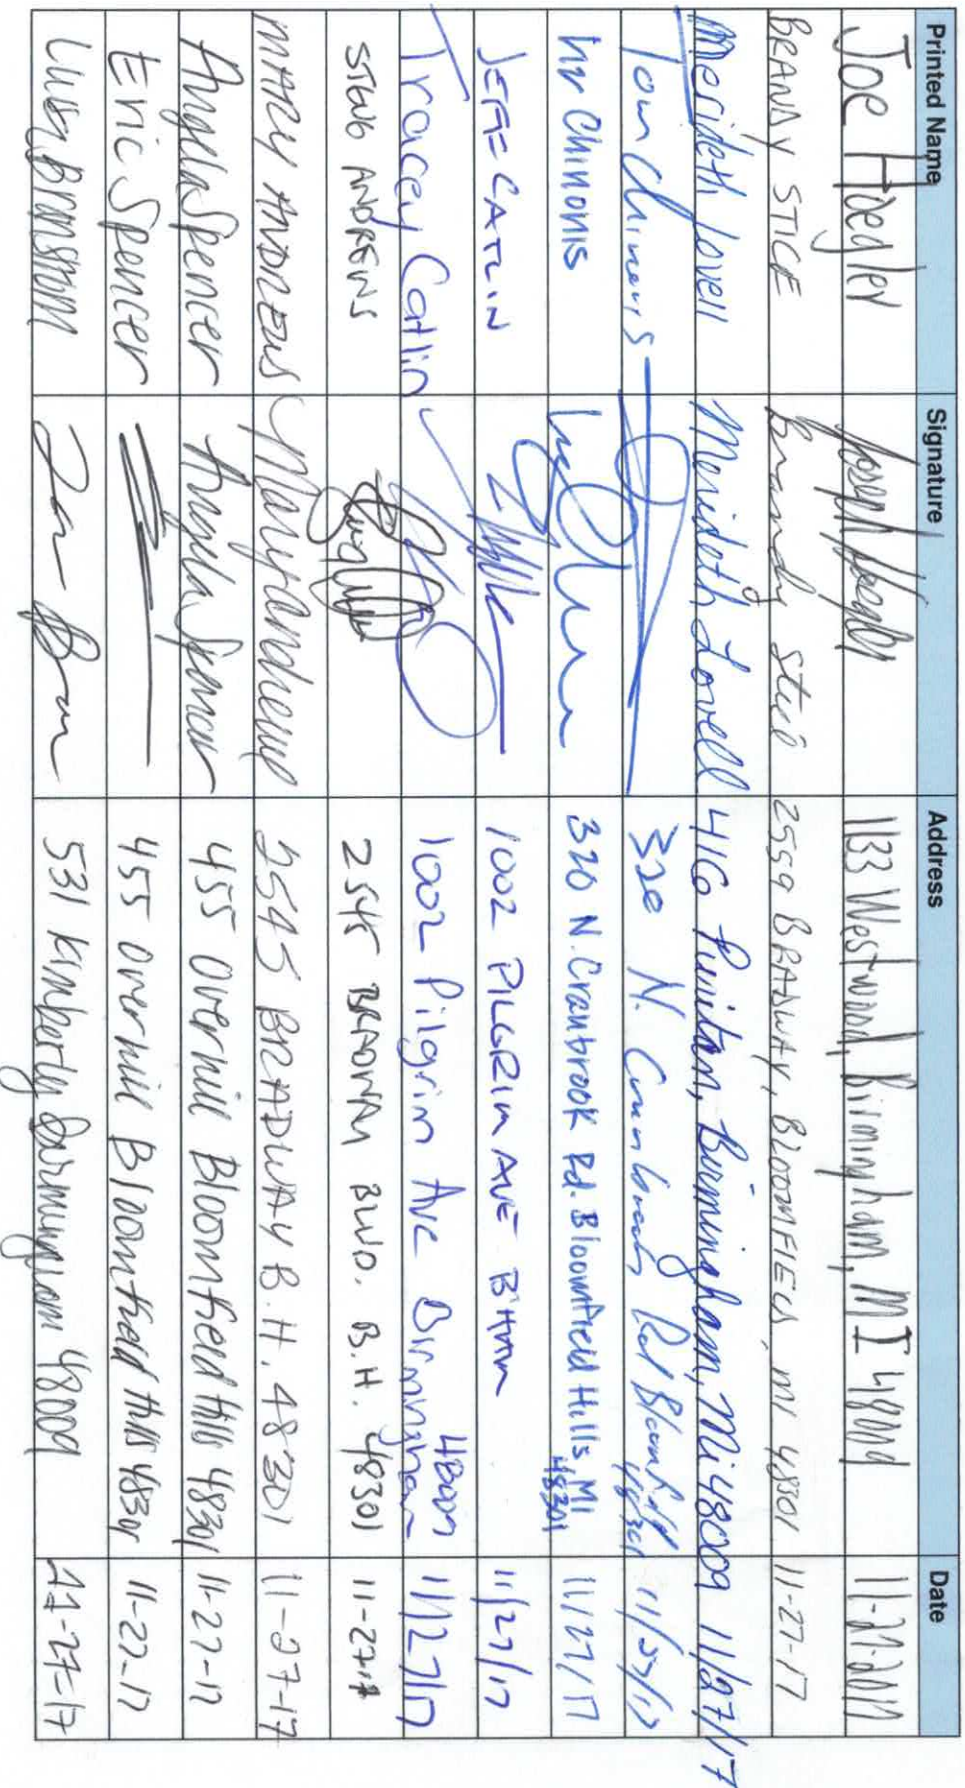 Printed Name Signature Address Date
Joe Hoegler Joseph 1133 Westwood, Birmingham, MI 48009
BRANDY STICE Brandy Stice 2559 BRADWAY, BLOOMFIELD, MI 48301 11-27-17
Merideth Lovell Merideth Lovell 416 Puritan, Birmingham, Mi 48009 11/27/17
Tom Chinonis 320 N. Cranbrook Rd Bloomfield 48301 11/27/17
Chinonis 320 N. Cranbrook Rd. Bloomfield Hills, MI 48301 11/27/17
JEFF CATLIN 1002 PILGRIM AVE B'HAM 11/27/17
Tracey Catlin 1002 Pilgrim Ave Birmingham 48009 11/27/17
ANDREWS 2545 BLVD. B.H. 48301 11-27-17
MARY ANDREWS Mary Andrews 2545 BRADWAY B.H. 48301 11-27-17
Angela Spencer Angela Spencer 455 Overhill Bloomfield Hills 48301 11-27-17
Eric Spencer 455 Overhill Bloomfield Hills 48301 11-27-17
531 Kimberly Birmingham 48009 11-27-17